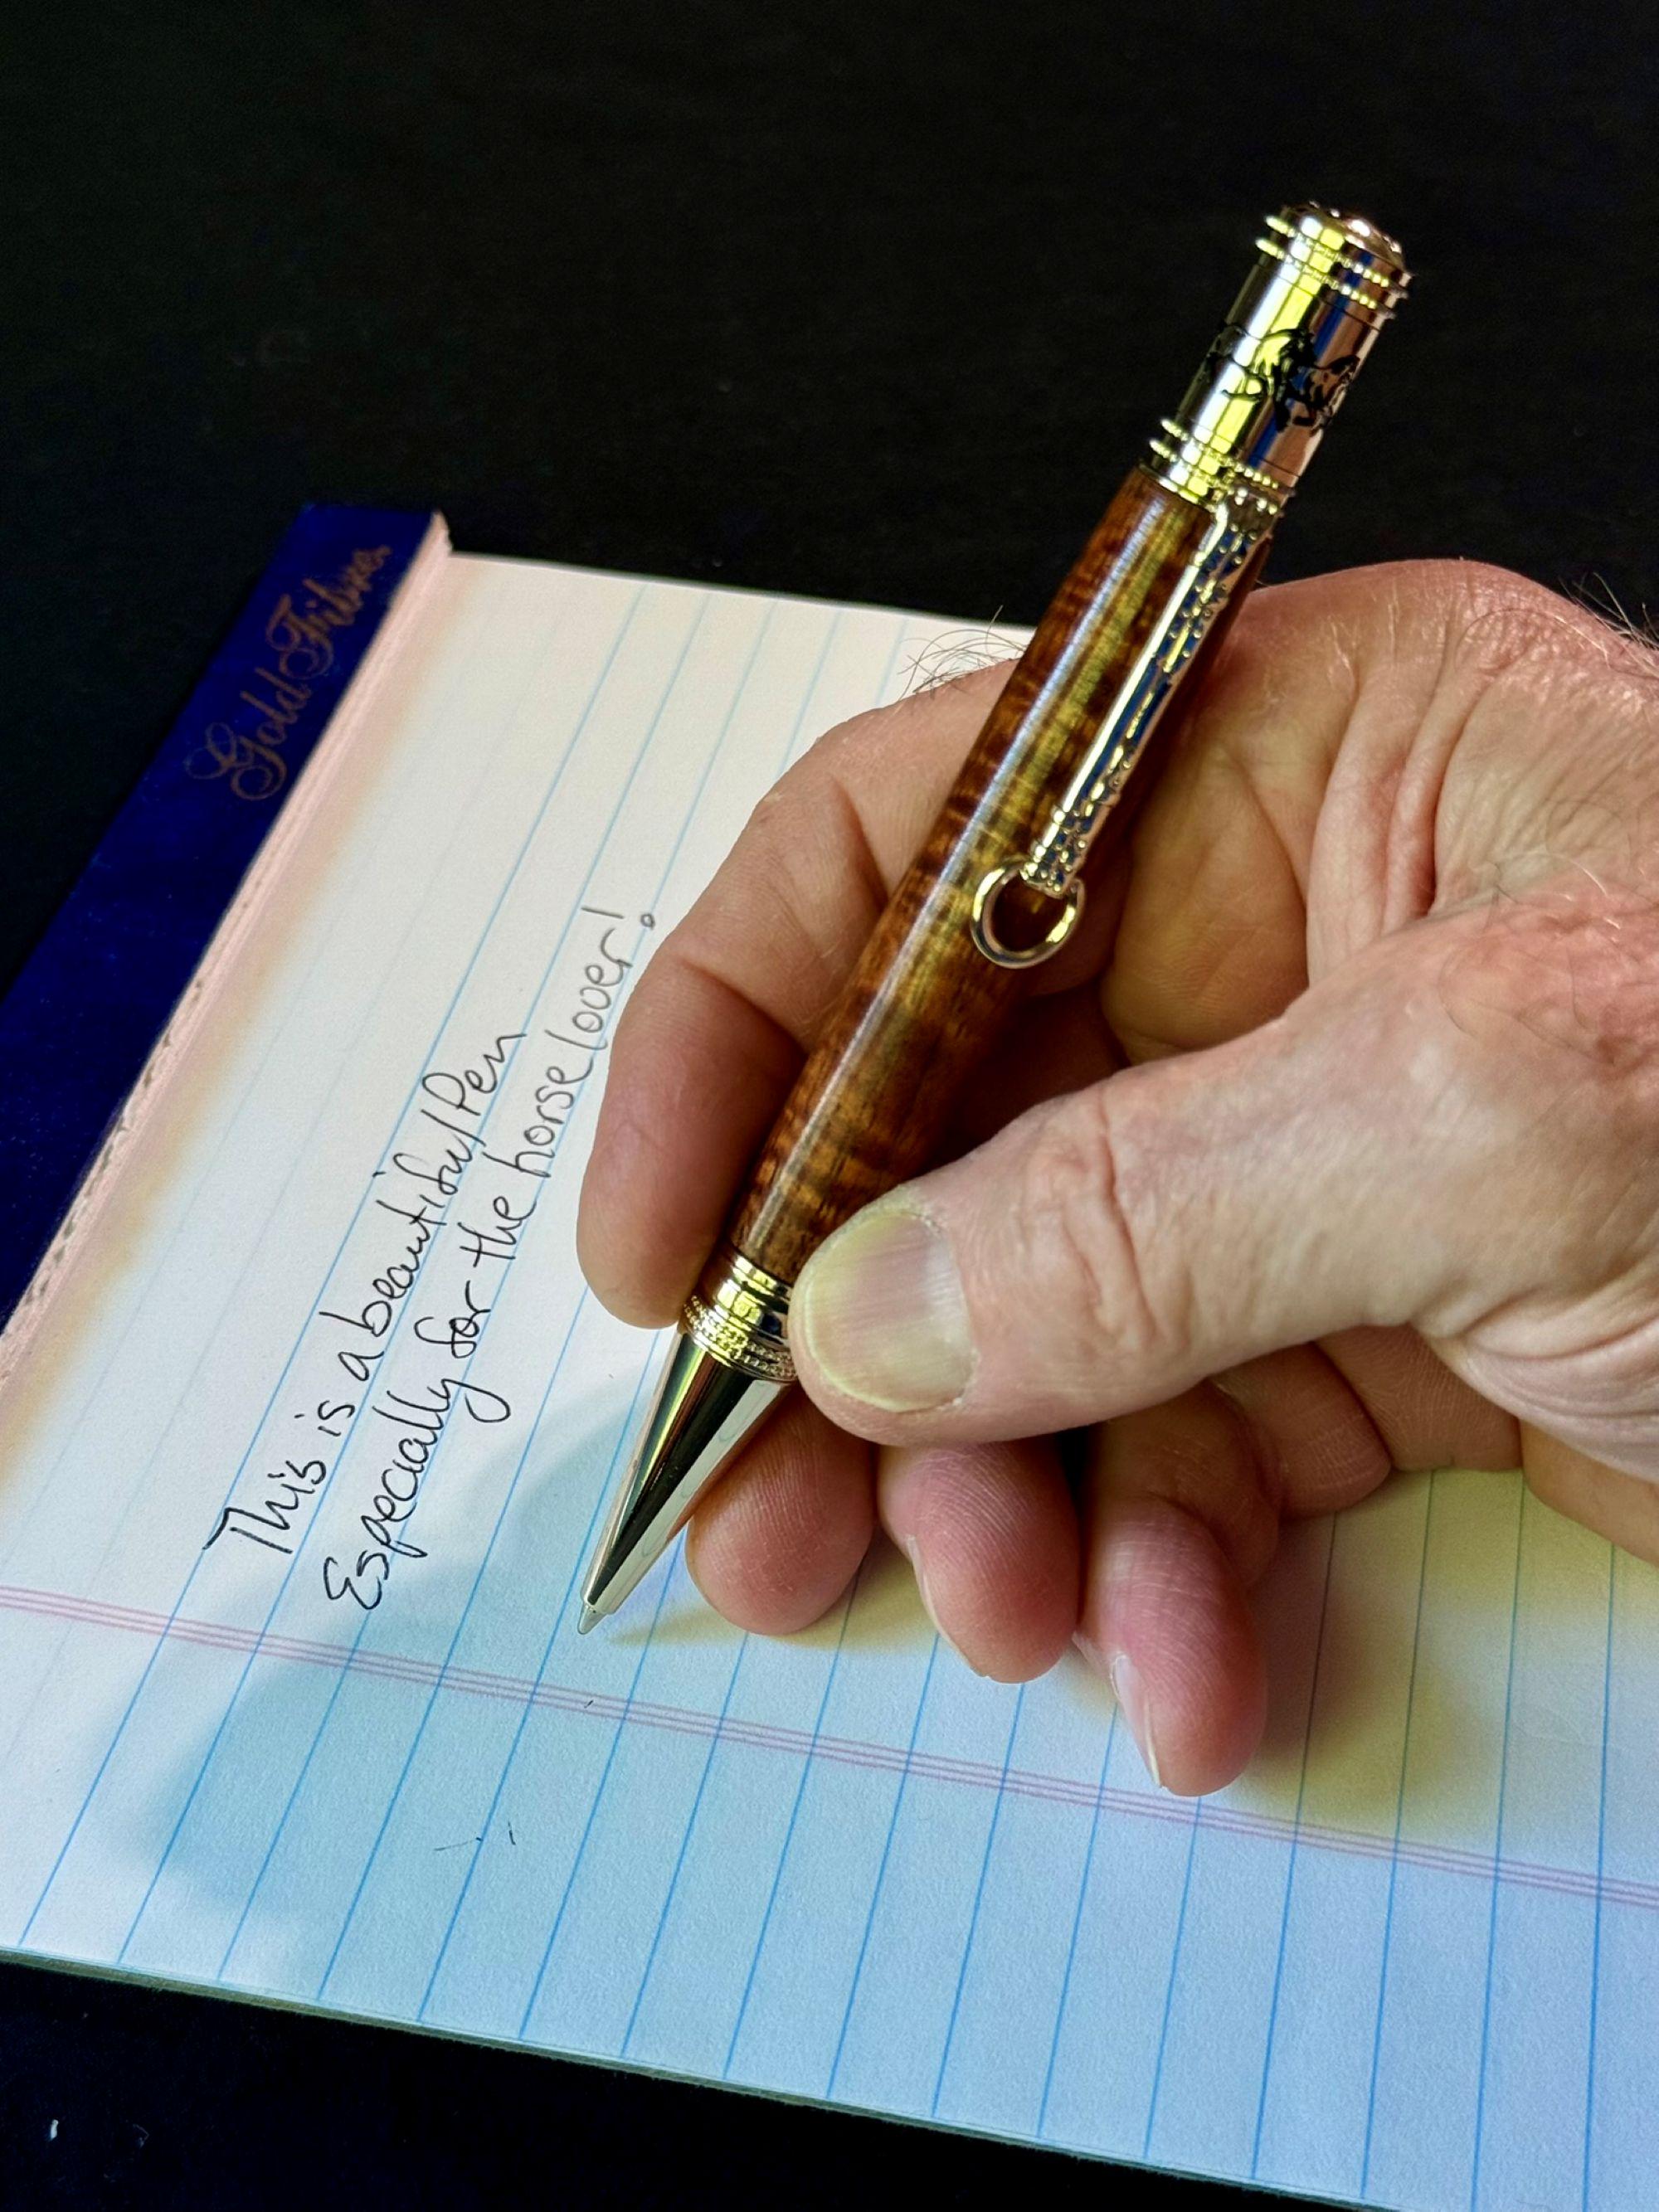 Gold Fibre
This is a beautiful Pen
Especially for the horse lover!